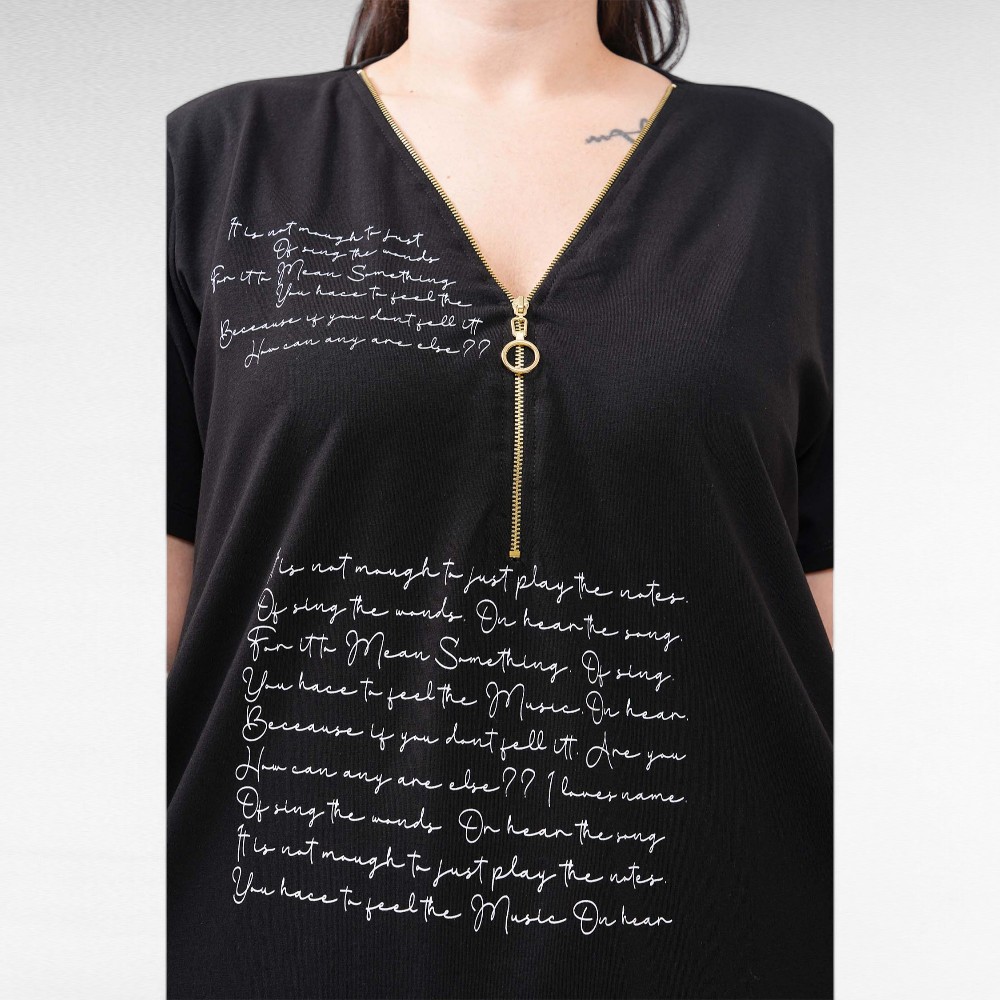 It is not mough to just
Of sing the words
For it to Mean Something
You hace to feel the
Beceause if you dont fell itt
How can any are else??
It is not mough to just play the notes.
Of sing the words. On hear the song.
For it to Mean Something. Of sing.
You hace to feel the Music. On hear.
Beceause if you dont fell itt. Are you
How can any are else?? I loves name.
Of sing the words On hear the song
It is not mough to just play the notes.
You hace to feel the Music On hear